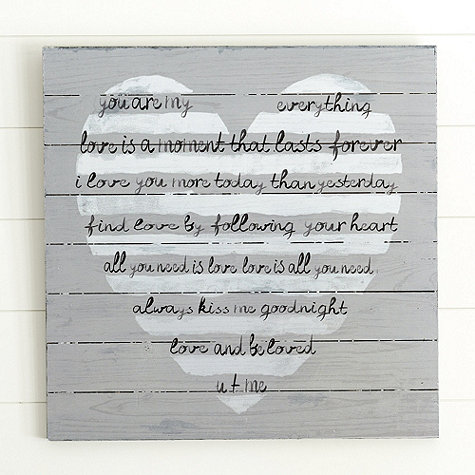 you are my everything
love is a moment that lasts forever
i love you more today than yesterday
find love by following your heart
all you need is love love is all you need.
always kiss me goodnight
love and be loved
u + me